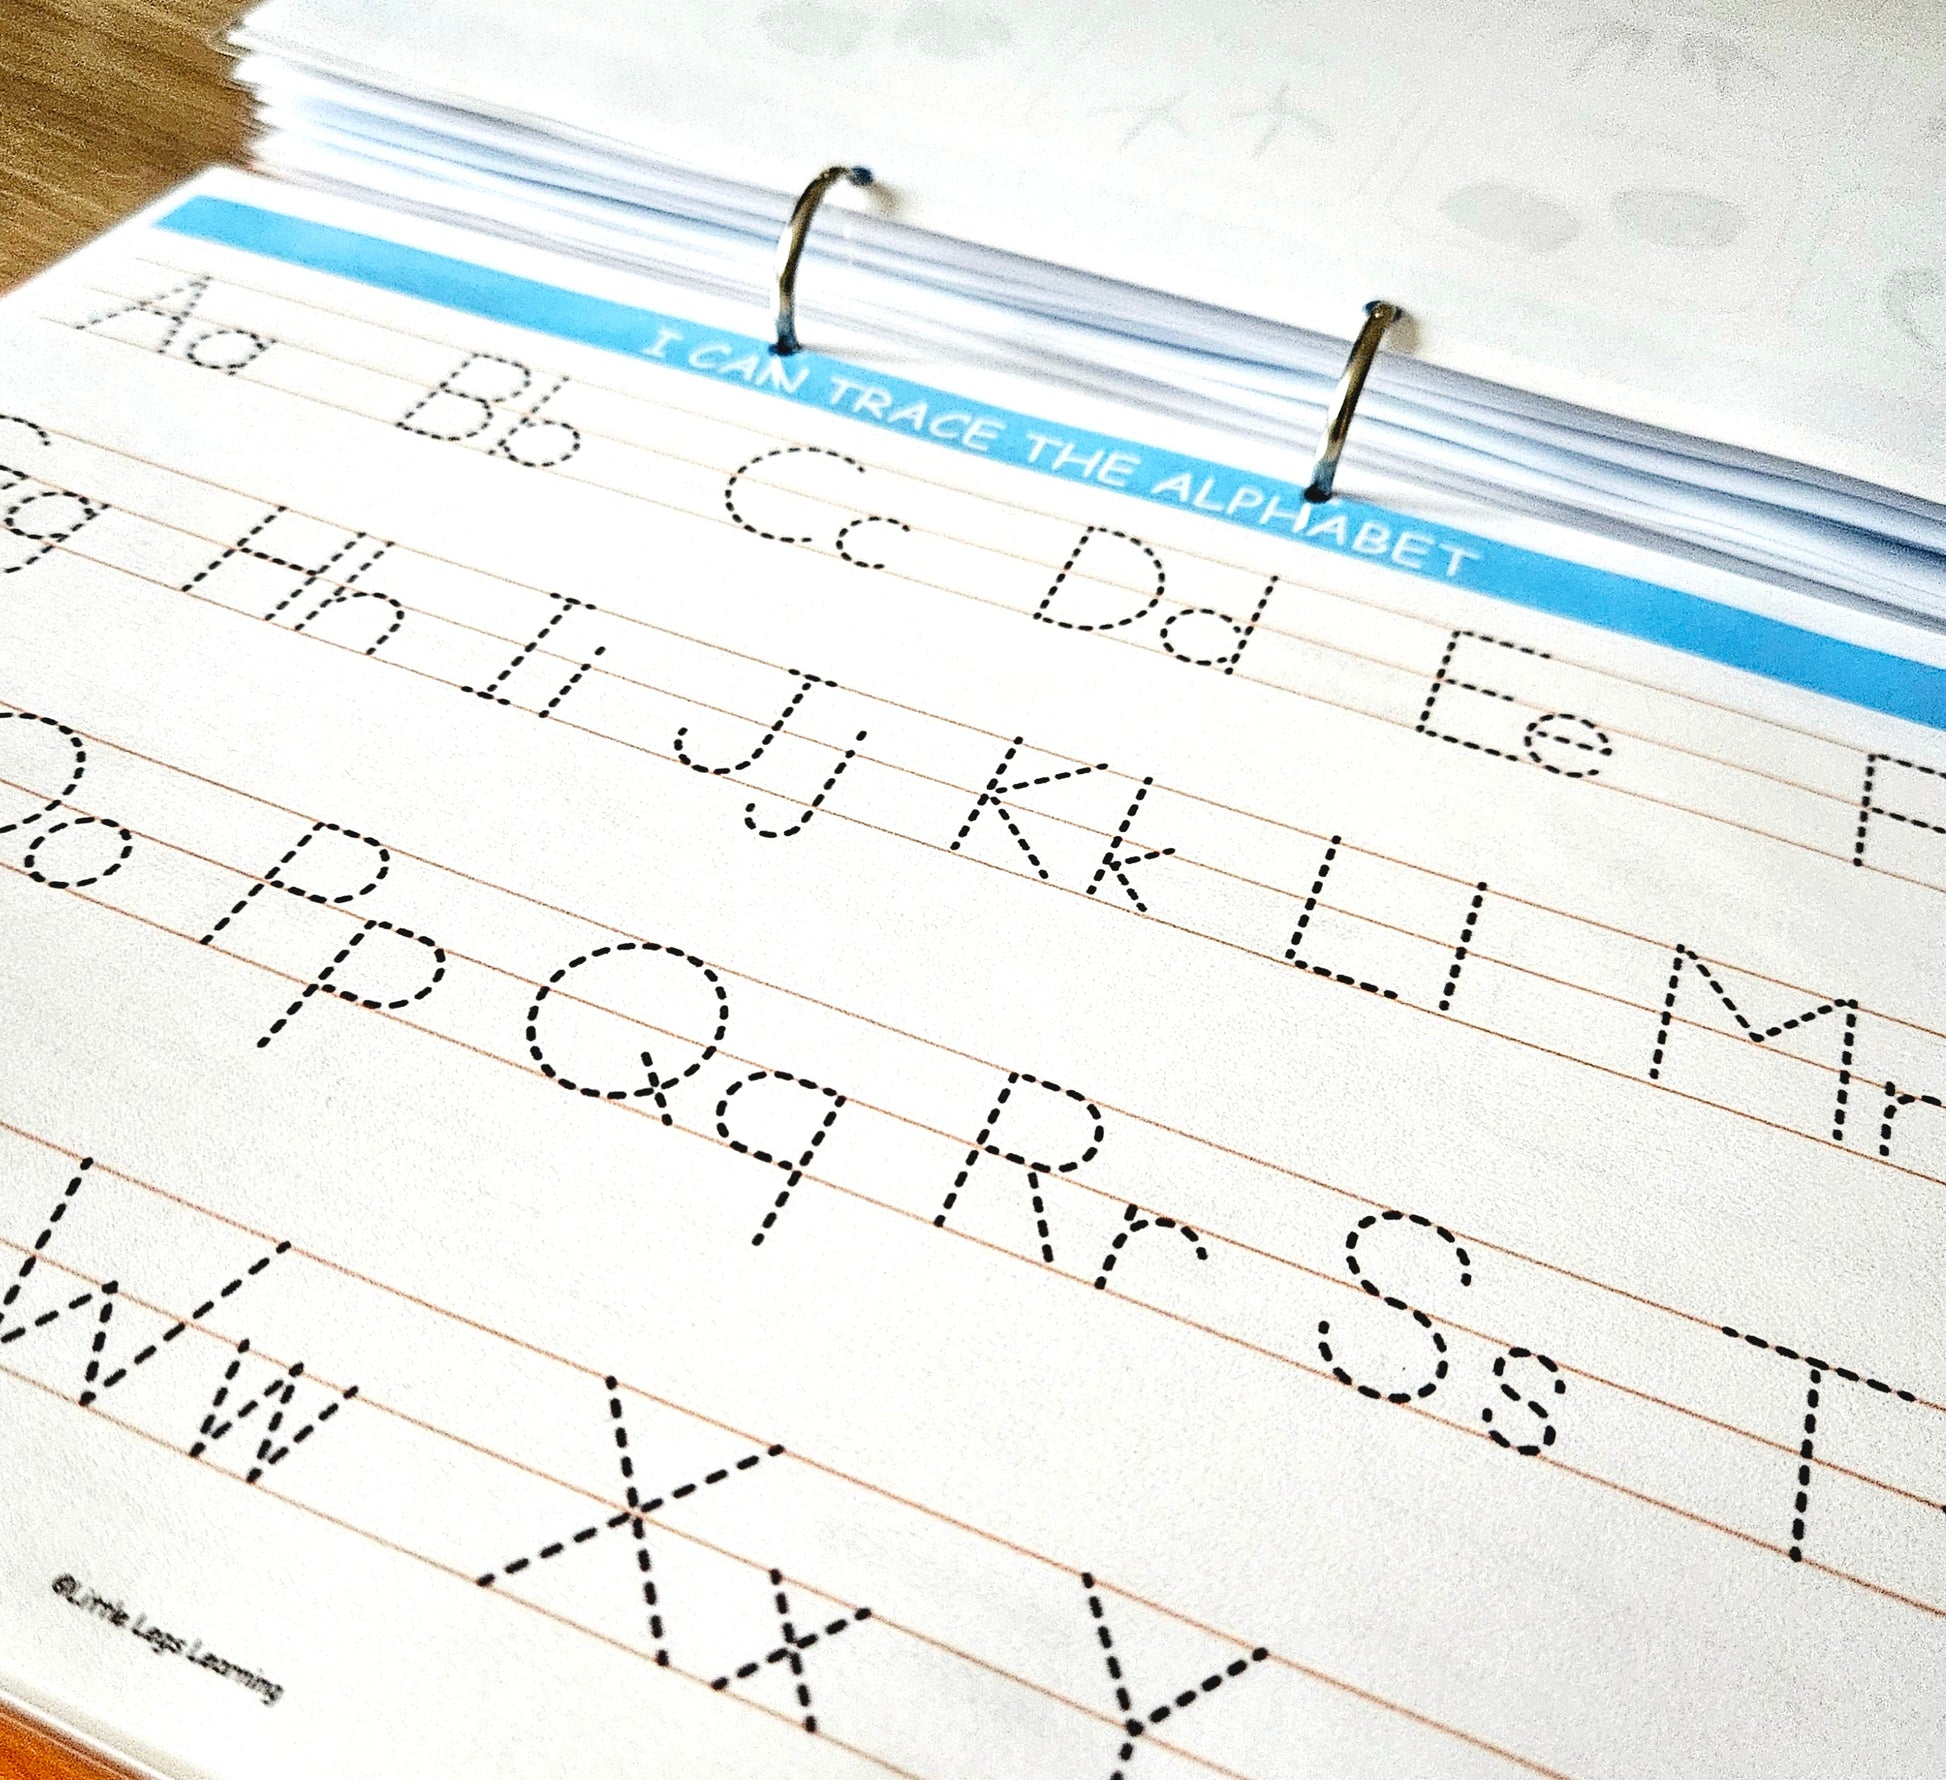 I CAN TRACE THE ALPHABET
Aa Bb Cc Dd Ee F
Gg Hh Ii Jj Kk Ll Mm
Oo Pp Qq Rr Ss T
Ww Xx Y
©Little Legs Learning